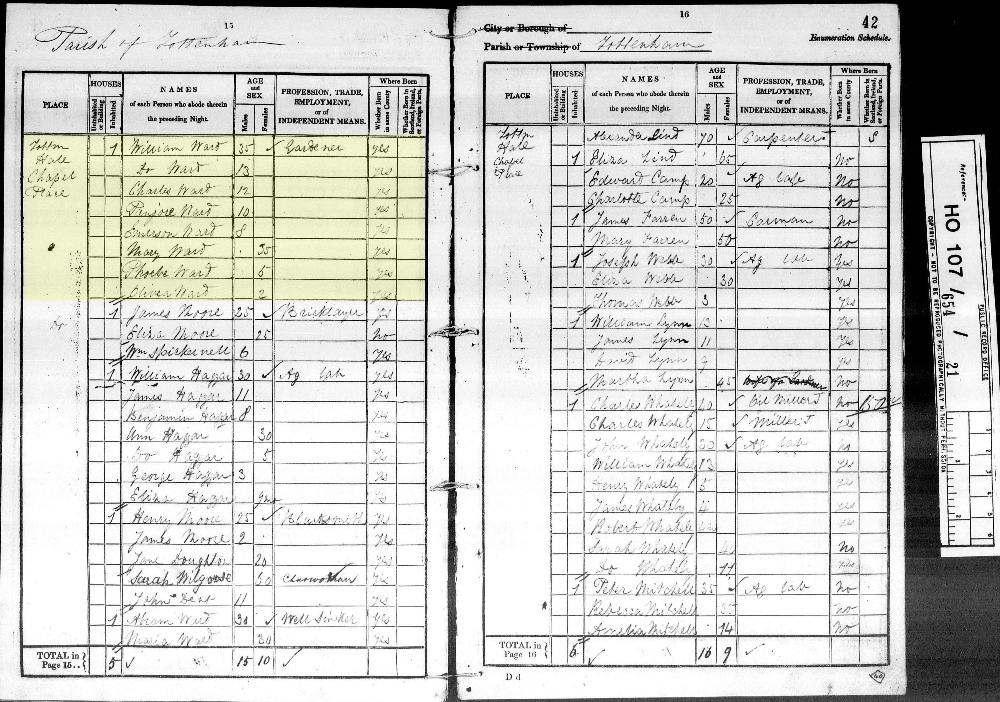 15
Parish of Tottenham
PLACE
HOUSES
Uninhabited or Building
Inhabited
NAMES
of each Person who abode therein
the preceding Night.
AGE and SEX
Males
Females
PROFESSION, TRADE, EMPLOYMENT, or of INDEPENDENT MEANS.
Where Born
Whether Born in same County
Whether Born in Scotland, Ireland, or Foreign Parts.
Tottm 1 William Ward 35 ✓ Gardener yes
Hale Do Ward 13 yes
Chapel Charles Ward 12 yes
Place Ward 10 yes
Emerson Ward 8 yes
Mary Ward 35 yes
Phoebe Ward 5 yes
Oliver Ward 2 yes
Do 1 James Moore 25 ✓ Bricklayer yes
Eliza Moore 25 No
Wm Spickernell 6 yes
1 William Hagar 30 ✓ Ag lab yes
James Hagar 11 yes
Benjamin Hagar 8 yes
Ann Hagar 30 yes
Do Hagar 5 yes
George Hagar 3 yes
Eliza Hagar 9mo yes
1 Henry Moore 25 ✓ Blacksmith yes
James Moore 2 yes
Jane Doughton 20 yes
Sarah Wilgoose 30 Charwoman yes
John 11 yes
1 Abram 30 ✓ Well Sinker yes
Maria Ward 30 yes
TOTAL in Page 15.. 5 ✓ 15 10 ✓
16
42
City or Borough of
Enumeration Schedule.
Parish or Township of Tottenham
PLACE
HOUSES
Uninhabited or Building
Inhabited
NAMES
of each Person who abode therein
the preceding Night.
AGE and SEX
Males
Females
PROFESSION, TRADE, EMPLOYMENT, or of INDEPENDENT MEANS.
Where Born
Whether Born in same County
Whether Born in Scotland, Ireland, or Foreign Parts.
Tottm Lind 70 ✓ Carpenter S
Hale 1 Eliza Lind 65 No
Chapel Edward Camp 20 ✓ Ag lab No
Place Charlotte Camp 25 No
1 James Farren 50 ✓ Carman No
Mary Farren 50 No
1 Joseph Webb 30 ✓ Ag lab yes
Eliza Webb 30 yes
Thomas Webb 3 yes
1 William Lynn 13 yes
James Lynn 11 yes
David Lynn 9 yes
Martha Lynn 45 No
1 Charles Whately 40 ✓ Oil Miller J No
Charles Whately 15 ✓ Miller J yes
John Whately 20 ✓ Ag lab no
William Whately 13 yes
Henry Whately 5 yes
James Whately 4 yes
Robert Whately yes
Sarah Whately No
Do Whately 11 yes
1 Peter Mitchell 35 ✓ Ag lab no
Rebecca Mitchell 35 no
Amelia Mitchell 14 No
TOTAL in Page 16 6 ✓ 16 9 ✓
D d
Reference:-
HO 107/654/21
PUBLIC RECORD OFFICE
COPYRIGHT - NOT TO BE REPRODUCED PHOTOGRAPHICALLY WITHOUT PERMISSION